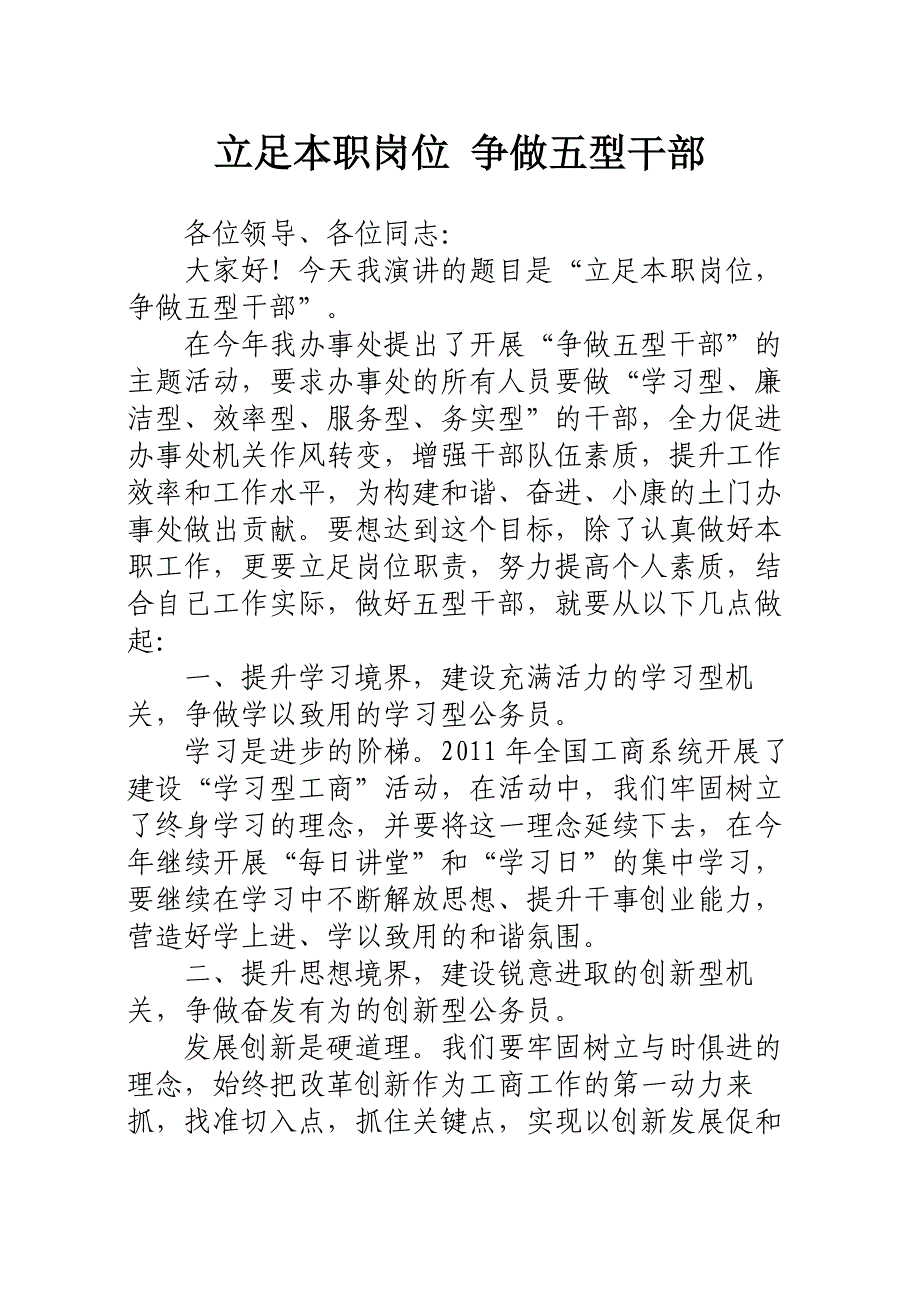 立足本职岗位 争做五型干部
各位领导、各位同志：
大家好！今天我演讲的题目是“立足本职岗位，
争做五型干部”。
在今年我办事处提出了开展“争做五型干部”的
主题活动，要求办事处的所有人员要做“学习型、廉
洁型、效率型、服务型、务实型”的干部，全力促进
办事处机关作风转变，增强干部队伍素质，提升工作
效率和工作水平，为构建和谐、奋进、小康的土门办
事处做出贡献。要想达到这个目标，除了认真做好本
职工作，更要立足岗位职责，努力提高个人素质，结
合自己工作实际，做好五型干部，就要从以下几点做
起：
一、提升学习境界，建设充满活力的学习型机
关，争做学以致用的学习型公务员。
学习是进步的阶梯。2011 年全国工商系统开展了
建设“学习型工商”活动，在活动中，我们牢固树立
了终身学习的理念，并要将这一理念延续下去，在今
年继续开展“每日讲堂”和“学习日”的集中学习，
要继续在学习中不断解放思想、提升干事创业能力，
营造好学上进、学以致用的和谐氛围。
二、提升思想境界，建设锐意进取的创新型机
关，争做奋发有为的创新型公务员。
发展创新是硬道理。我们要牢固树立与时俱进的
理念，始终把改革创新作为工商工作的第一动力来
抓，找准切入点，抓住关键点，实现以创新发展促和